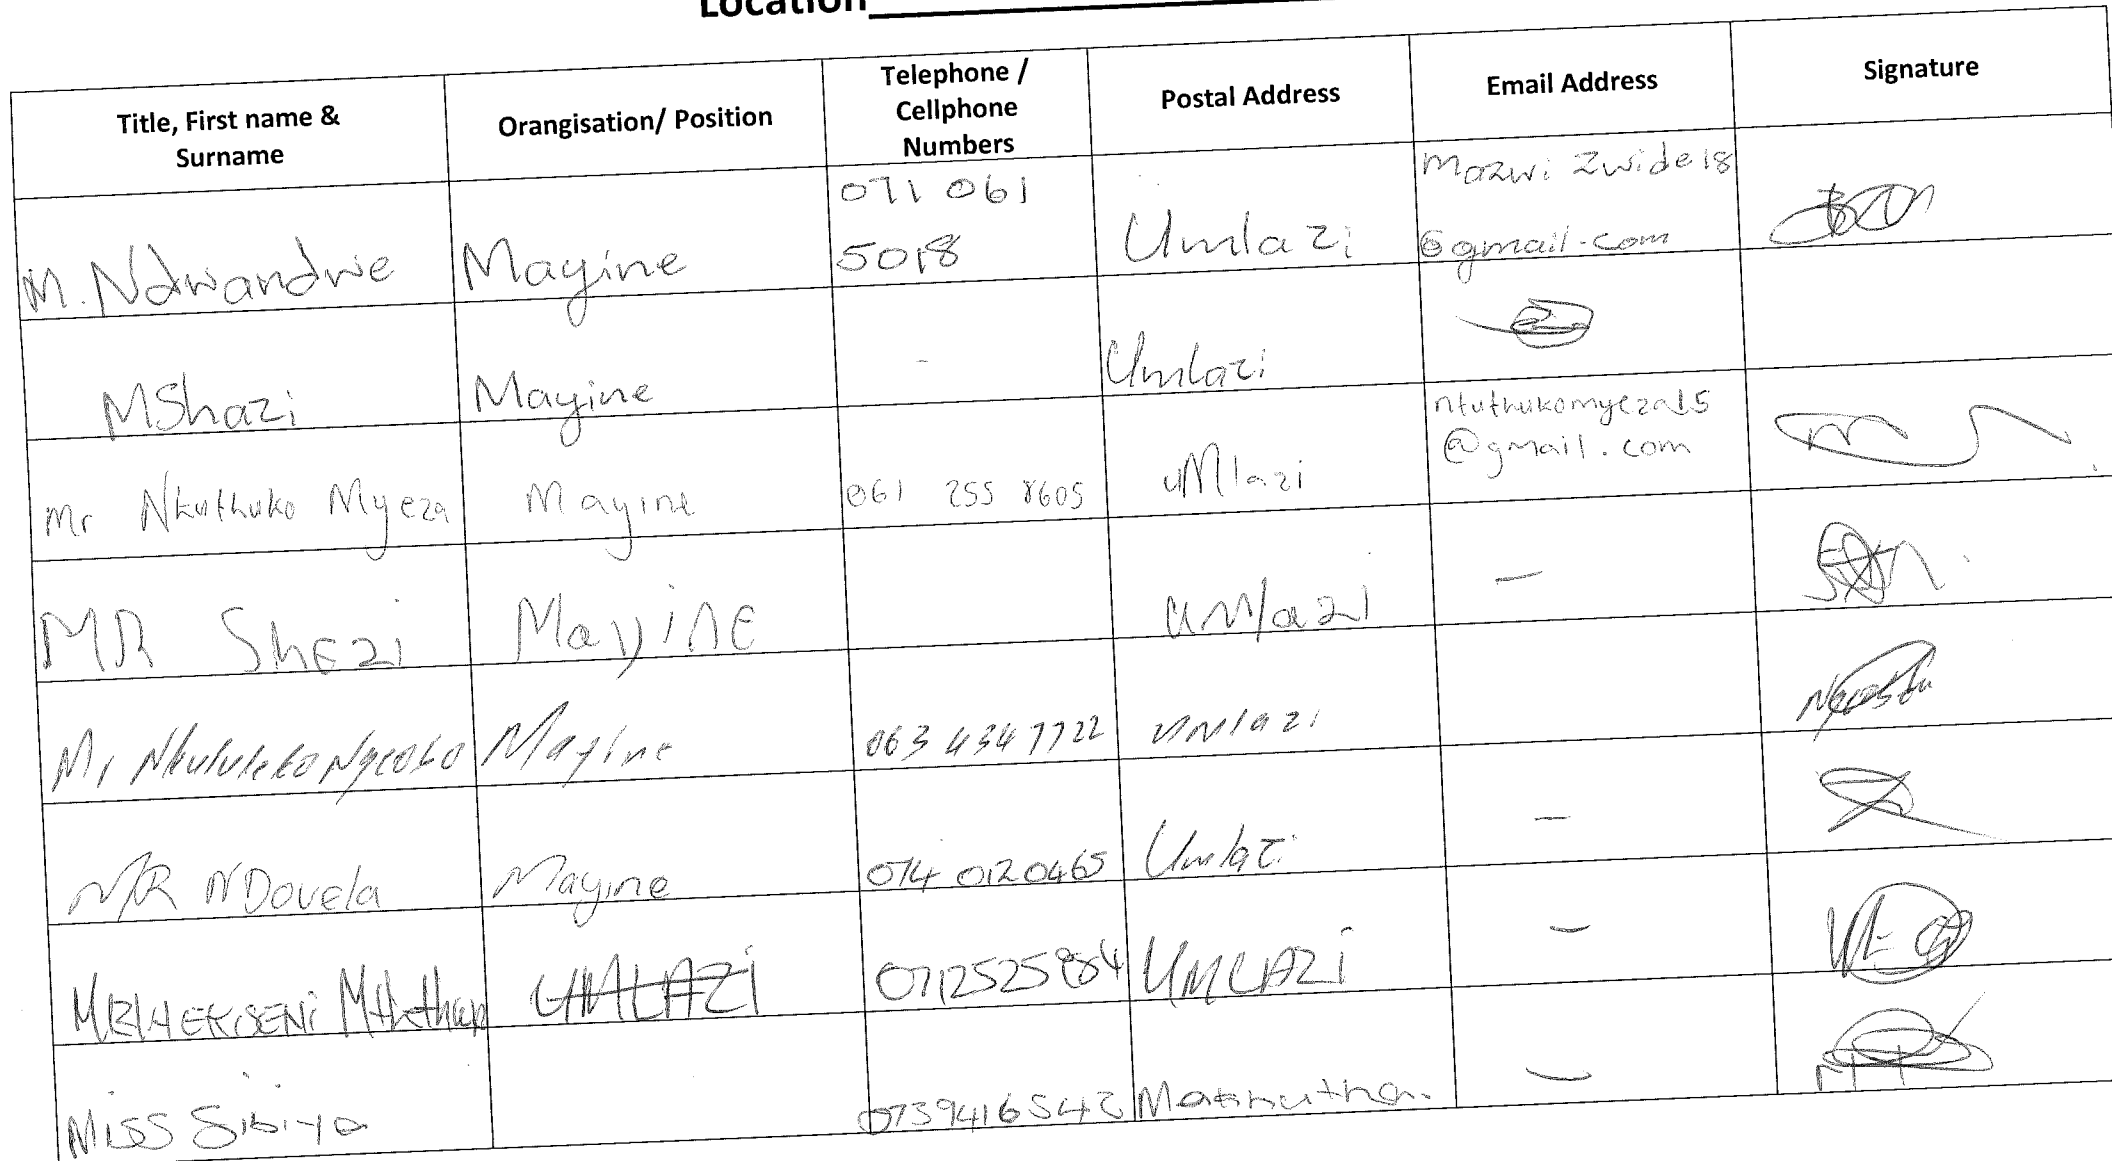 Location
Title, First name & Surname Orangisation/ Position Telephone / Cellphone Numbers Postal Address Email Address Signature
M. Ndwandwe Mayine 071 061 5018 Umlazi Mazwi Zwide18 @gmail.com
MShazi Mayine - Umlazi
Mr Nkuthuko Myeza Mayine 061 255 8605 uMlazi ntuthukomyeza15 @gmail.com
MR Shezi Mayine uMlazi -
Mr Nkululeko Ngcobo Mayine 063 434 7722 uMlazi
MR NDovela Mayine 074 0120465 Umlazi -
UMLAZI 0712525984 UMLAZI -
Miss Sibiya 0739416542 -